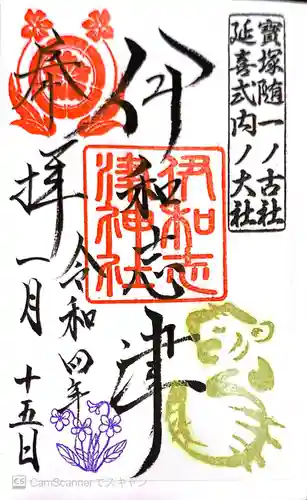 寶塚随一ノ古社
延喜式内ノ大社
伊和志津
伊和志
津神社
奉拝
令和四年
一月十五日
CamScannerでスキャン